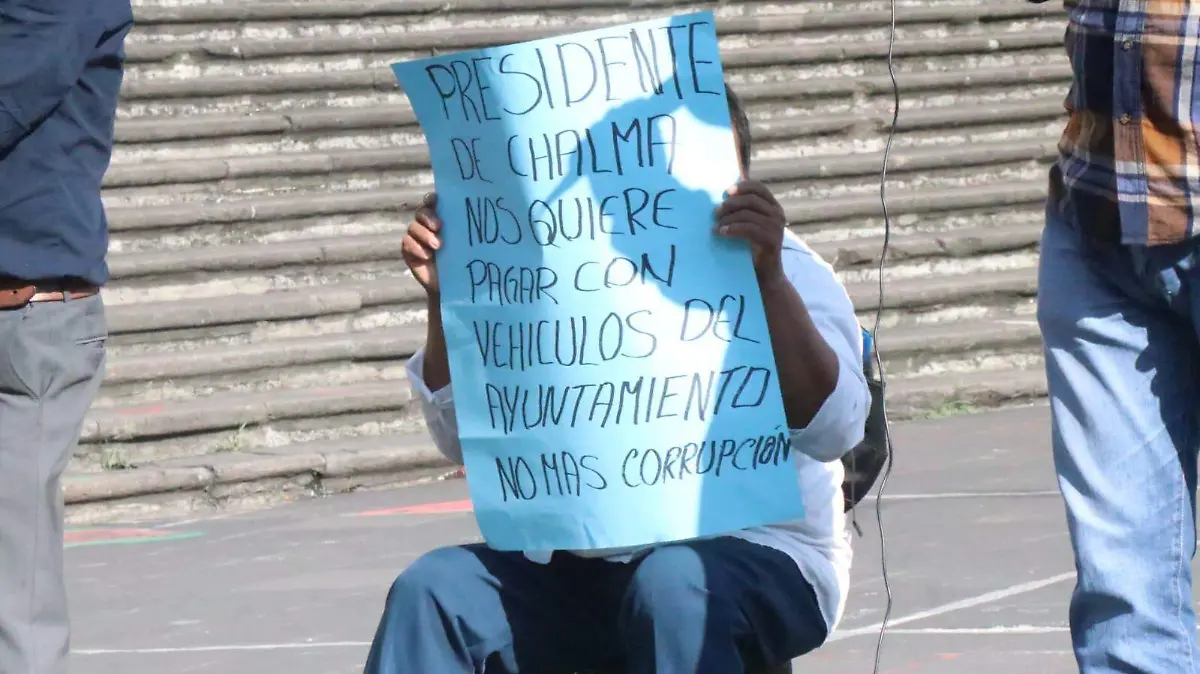 PRESIDENTE
DE CHALMA
NOS QUIERE
PAGAR CON
VEHICULOS DEL
AYUNTAMIENTO
NO MAS CORRUPCIÓN